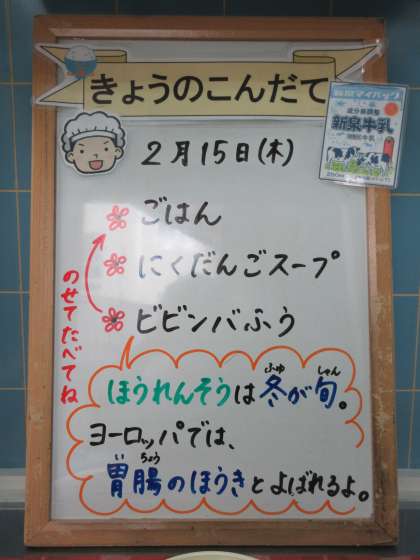 きょうのこんだて
2月15日(木)
ごはん
にくだんごスープ
ビビンバふう
のせてたべてね
ほうれんそうは冬が旬。
ふゆ
しゅん
ヨーロッパでは、
胃腸のほうきとよばれるよ。
い
ちょう
マイパック
成分無調整
新泉牛乳